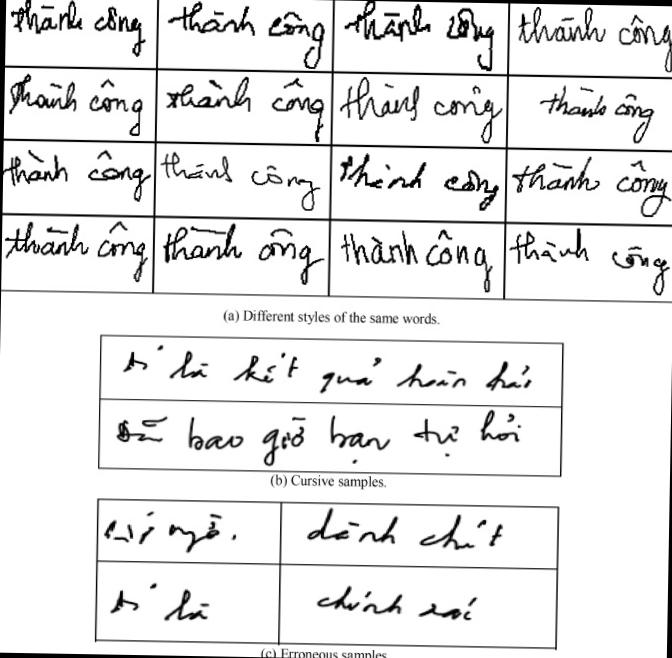 thành công thành công thành công thành công
thành công thành công thành công thành công
thành công thành công thành công thành công
thành công thành công thành công thành công
(a) Different styles of the same words.
là kết quả hoàn hảo
bao giờ bạn tự hỏi
(b) Cursive samples.
ngõ. dành chút
là chính xác
(c) Erroneous samples